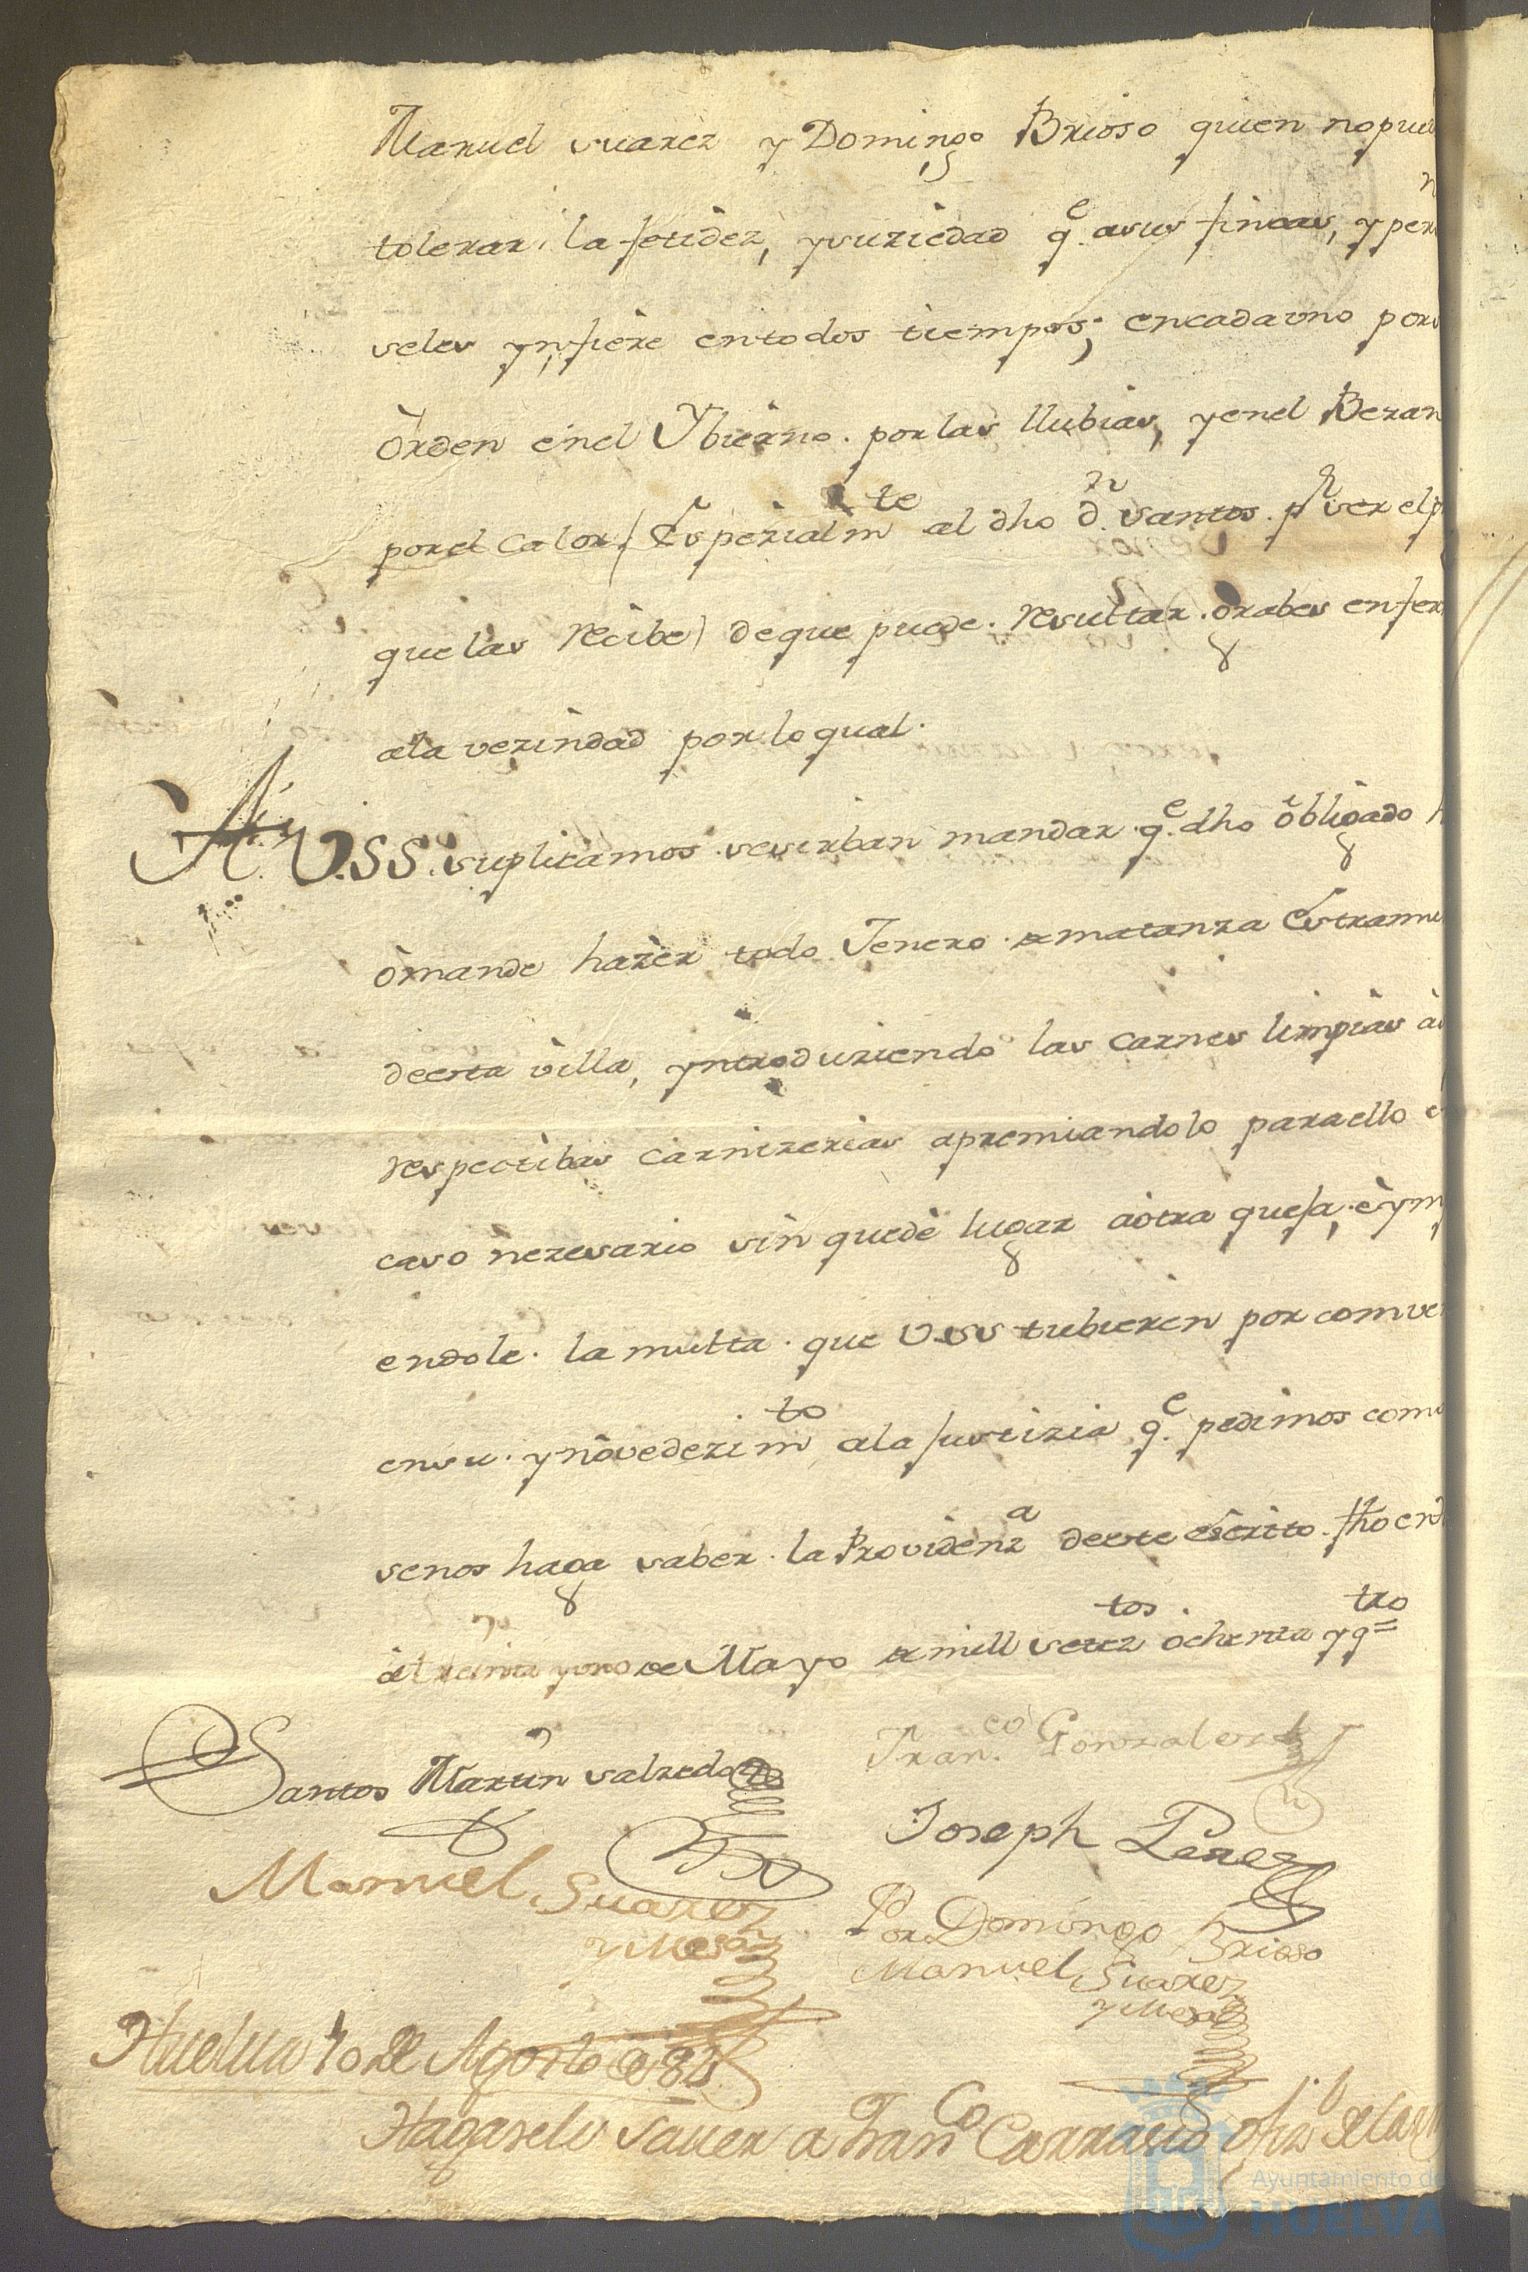 Manuel suarez y Domingo Brioso quien nopue
tolerar. la fetidez, ysuziedad q.e asus fincas, y per
seles ynfiere entodos tiempos; encadauno pors
òrden enel Ybierno. porlas llubias, yenel Beran
porel Calor. (Espezialm.te al dho d.n santos. p.r ser elp
quelas recibe) deque puede. resultar. grabes enfer
ala vezindad por lo qual.
A V.SS. suplicamos sesirban mandar. q.e dho obligado h
òmande hazer todo Jenero de matanza Estramu
deesta villa, yntroduziendo las carnes limpias à
respectibas carnizerias apremiandolo paraello e
caso nezesario sin quede lugar aòtra quefa, èym
endole. la multa. que V.SS tubieren por comve
ensu. ynòvedezim.to ala Justizia q.e pedimos como
senos haga saber. la Providenz.a deeste escrito. fho end
à treinta yuno de Mayo de mill setez.tos òchenta yq.tro=
Santos Martin salzedo
Fran.co Gonzalez
Joseph Perez
Manuel Suarez
y Mesa
Por Domingo Brioso
Manuel Suarez
y Mesa
Huelua 10 de Agosto de 84
Hagasele sauer a Fran.co Carrasco
Ayuntamiento de
HUELVA